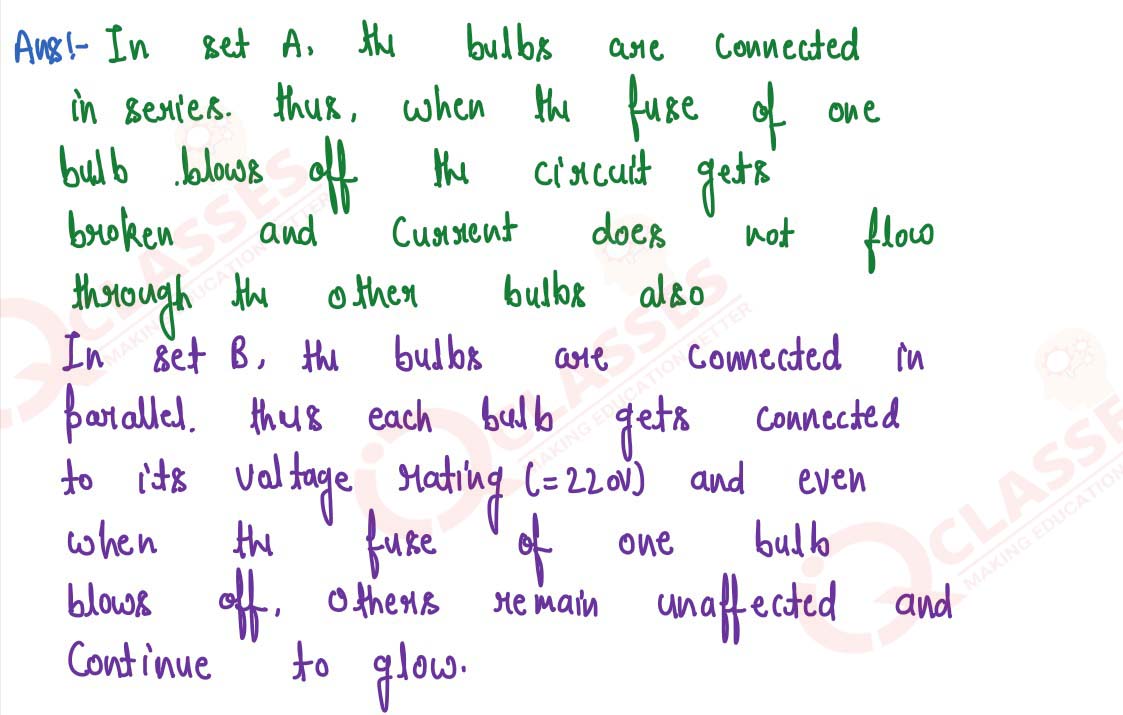 Ans:- In set A, the bulbs are connected
in series. thus, when the fuse of one
bulb blows off the circuit gets
broken and current does not flow
through the other bulbs also
In set B, the bulbs are connected in
parallel. thus each bulb gets connected
to its voltage rating (=220V) and even
when the fuse of one bulb
blows off, others remain unaffected and
Continue to glow.
CLASSES
MAKING EDUCATION BETTER
iQ CLASSES
MAKING EDUCATION BETTER
iQ CLASSES
MAKING EDUCATION